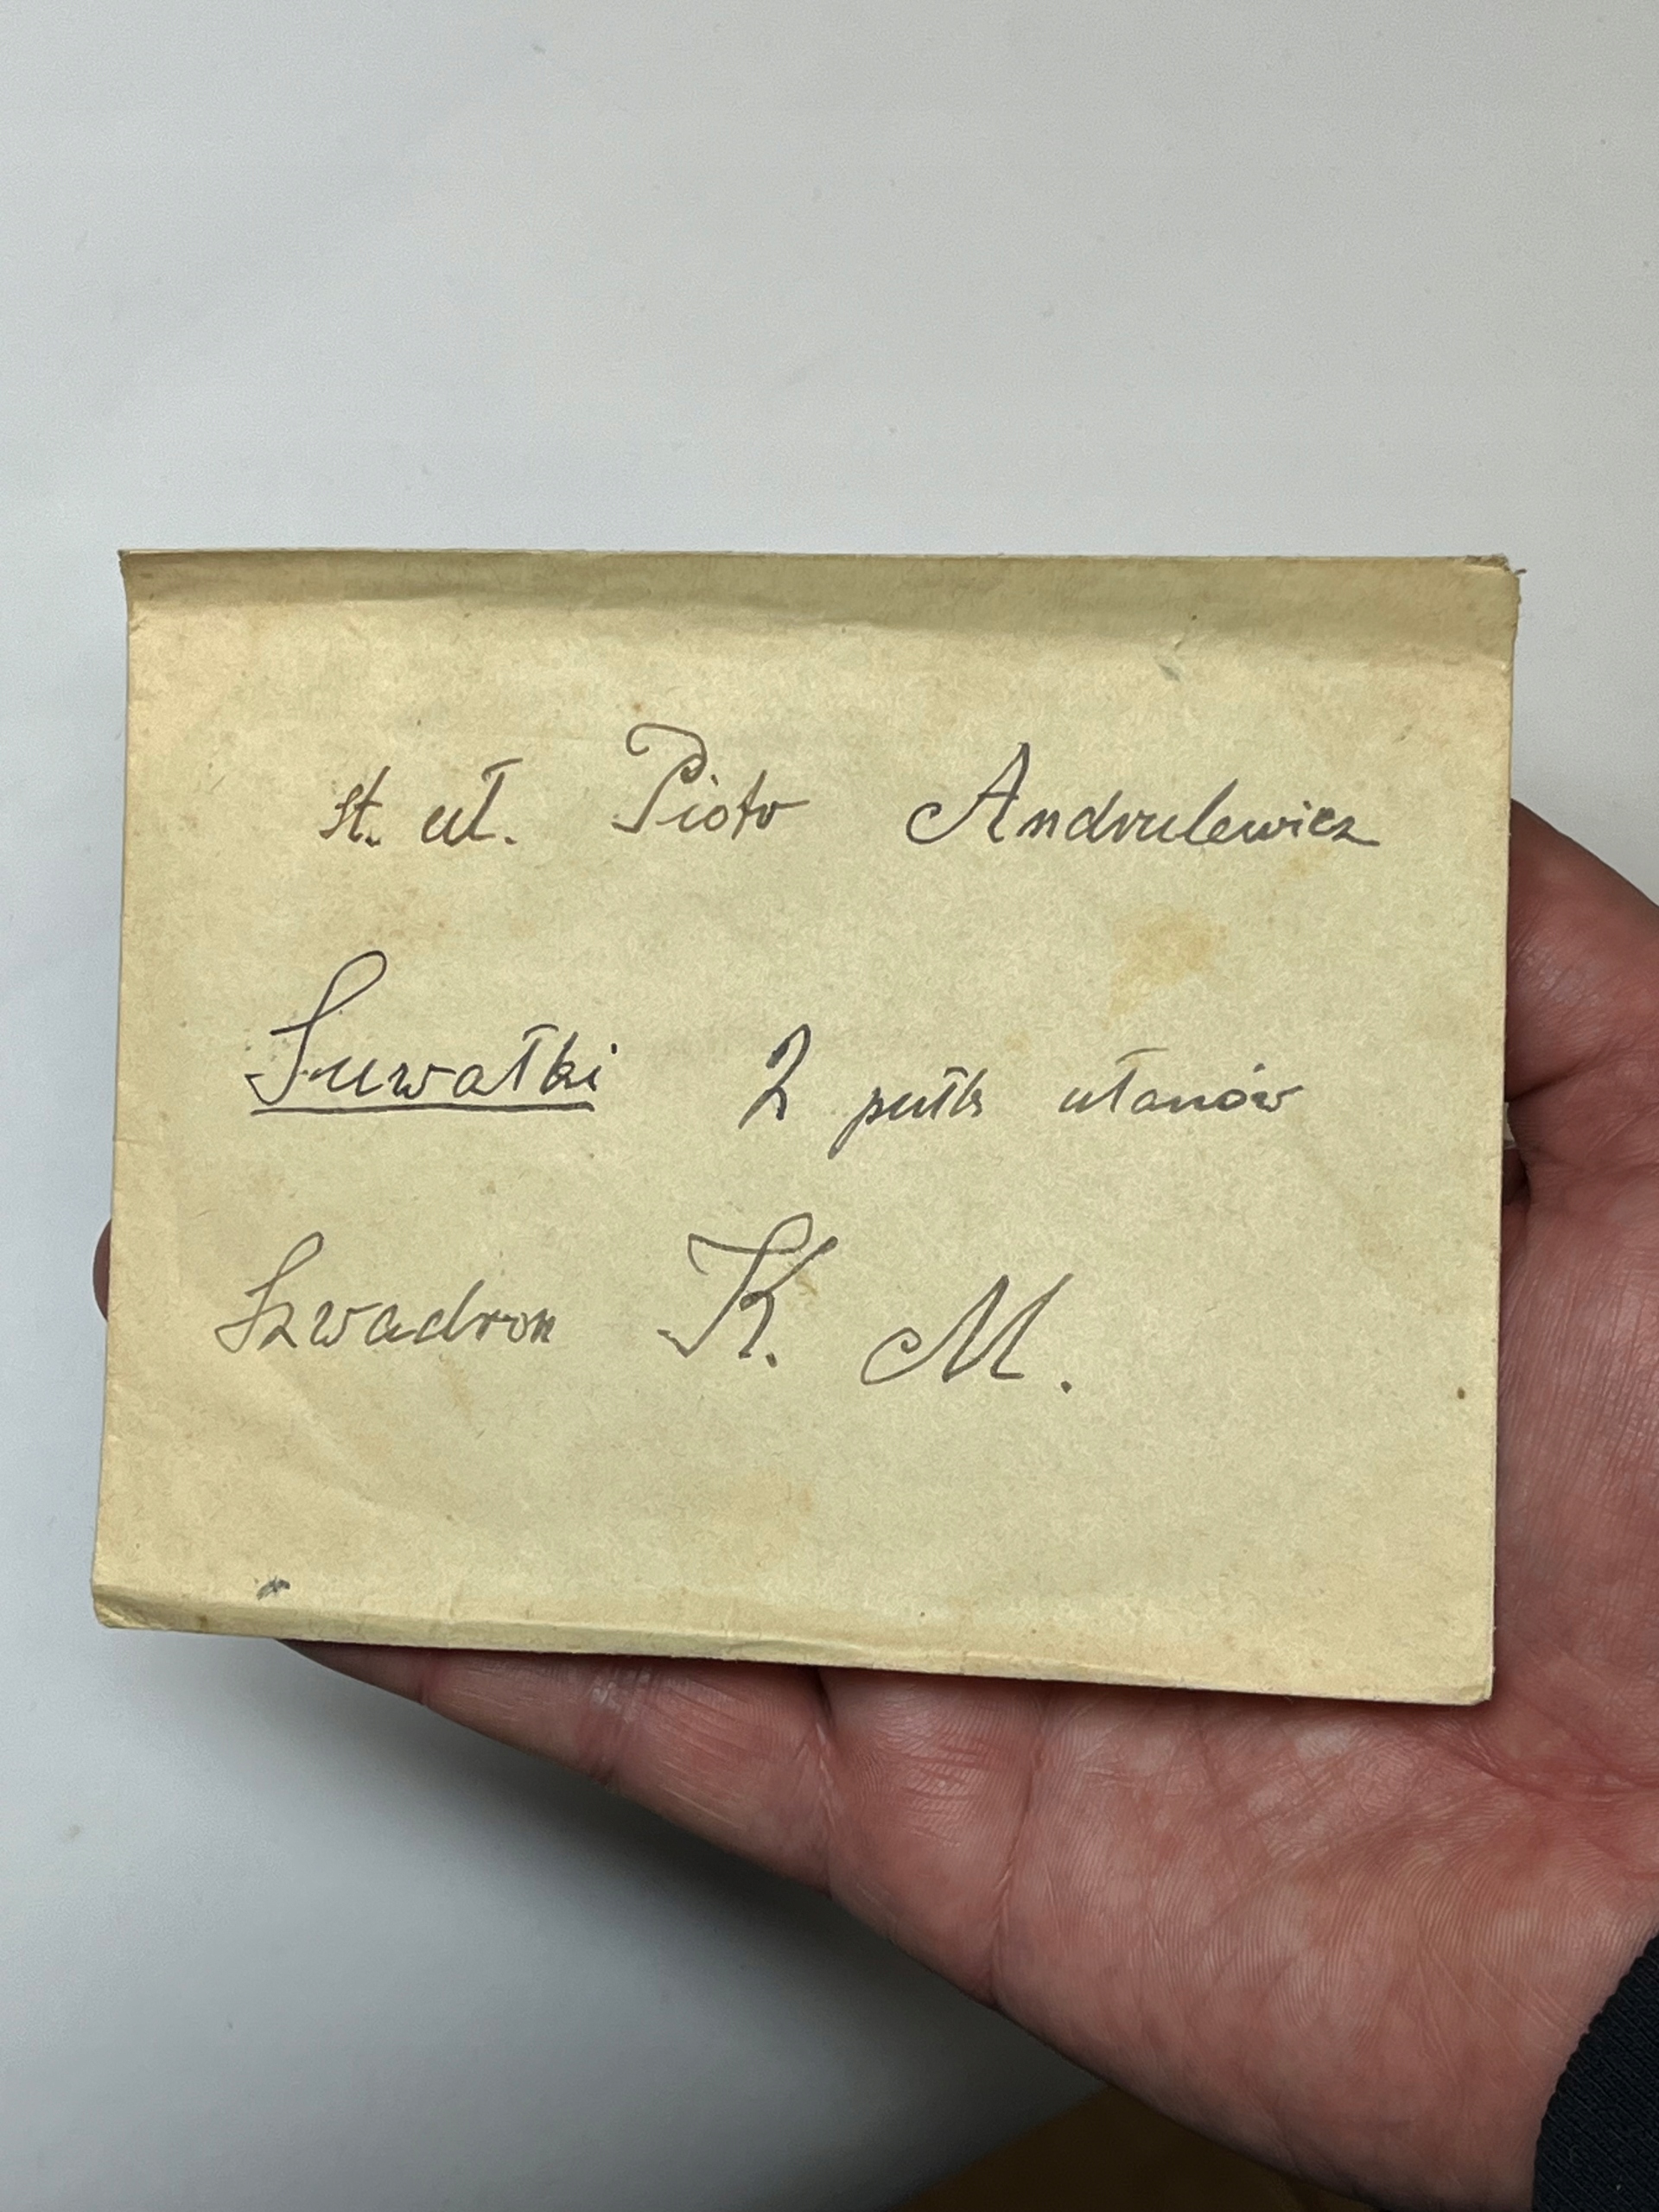 st. uł. Piotr Andrulewicz
Suwałki 2 pułk ułanów
Szwadron K. M.